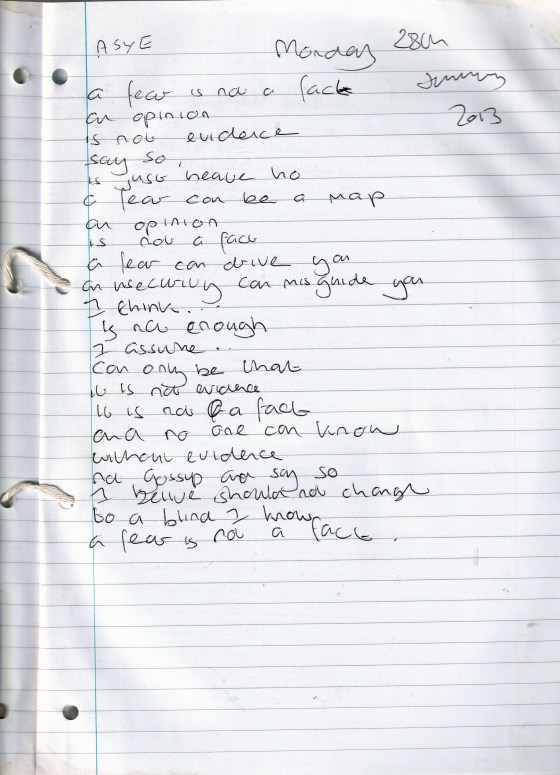 ASYE
Monday 28th
January
2013
a fear is not a fact
an opinion
is not evidence
say so,
is just heave ho
a fear can be a map
an opinion
is not a fact
a fear can drive you
an insecurity can misguide you
I think...
is not enough
I assume...
can only be that
it is not evidence
it is not a fact
and no one can know
without evidence
not gossup and say so
I belive should not change
to a blind I know
a fear is not a fact.